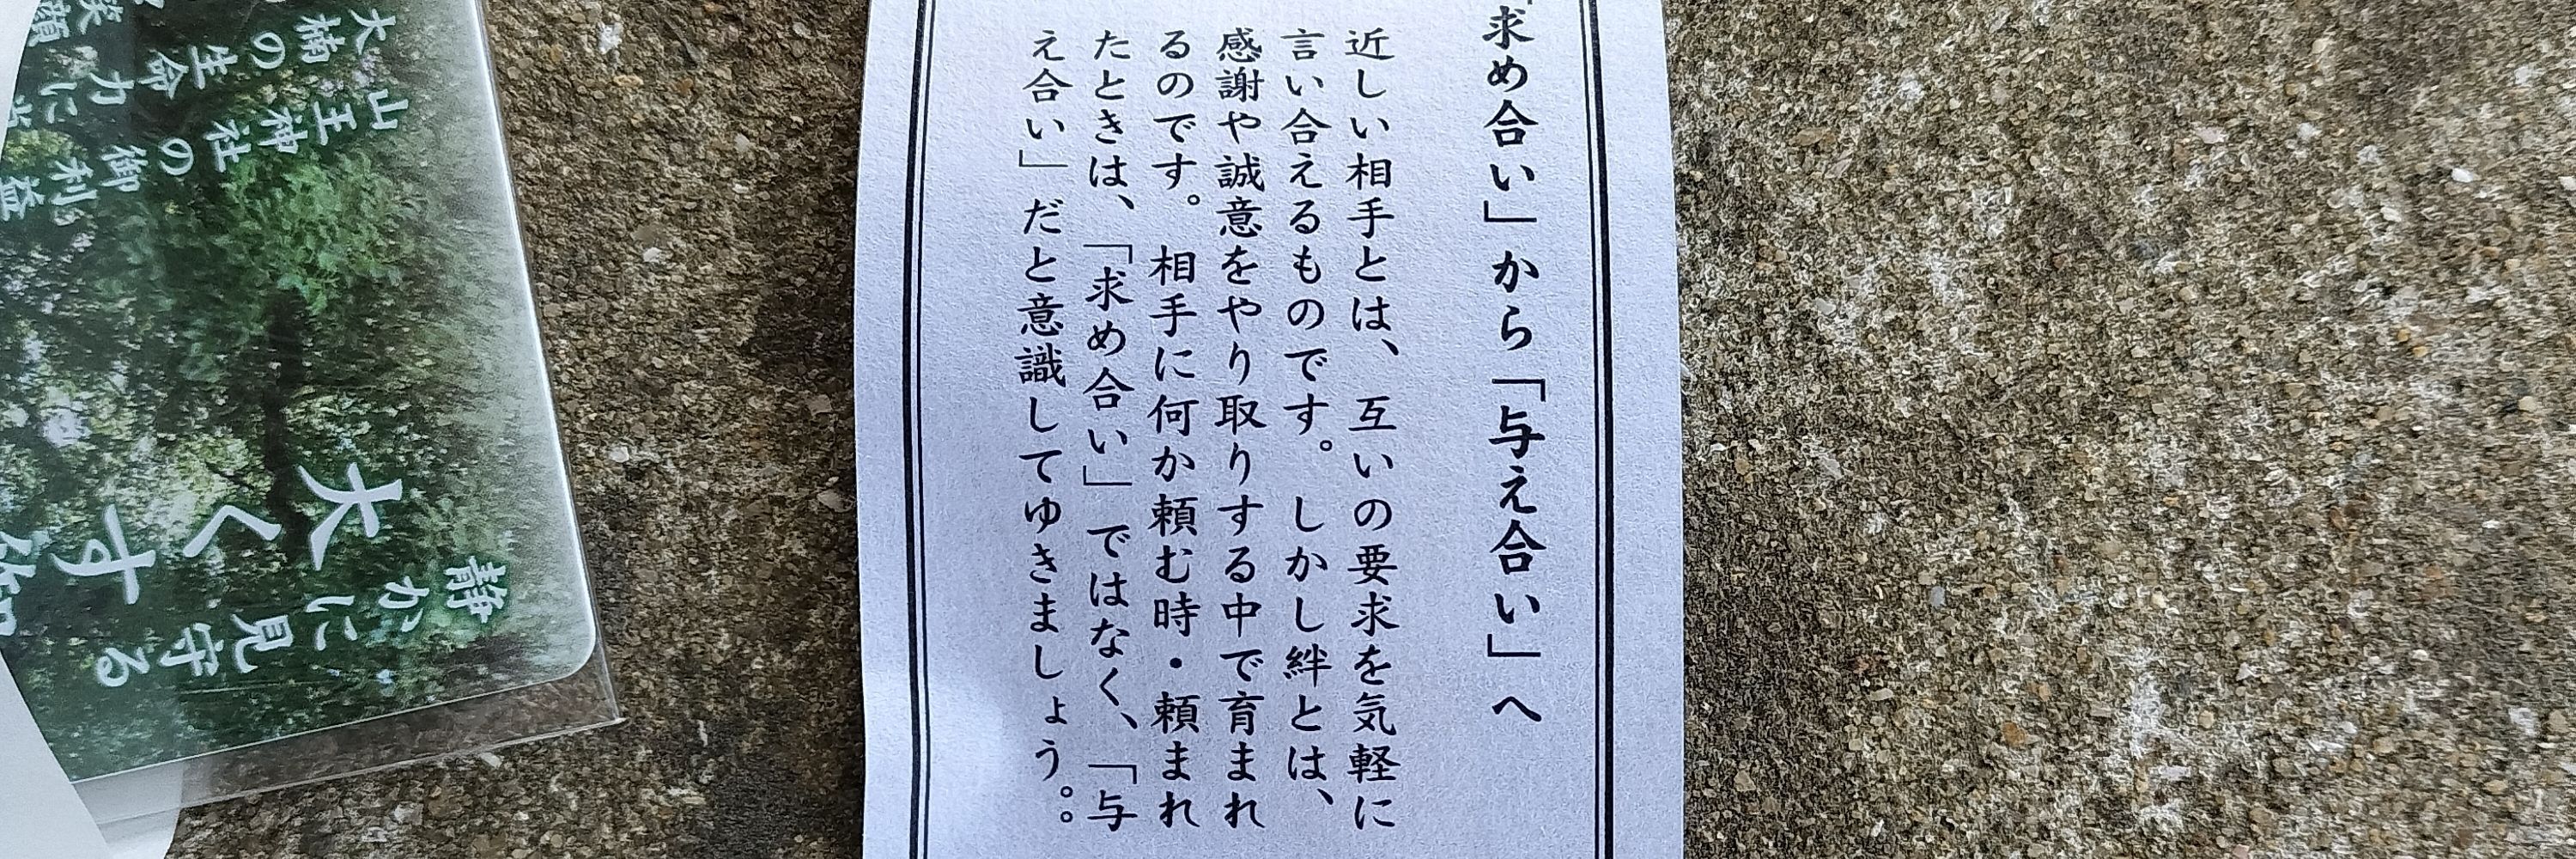 「求め合い」から「与え合い」へ
近しい相手とは、互いの要求を気軽に
言い合えるものです。しかし絆とは、
感謝や誠意をやり取りする中で育まれ
るのです。相手に何か頼む時・頼まれ
たときは、「求め合い」ではなく、「与
え合い」だと意識してゆきましょう。。
静かに見守る
大くす
山王神社の御利益
大楠の生命力に
笑顔